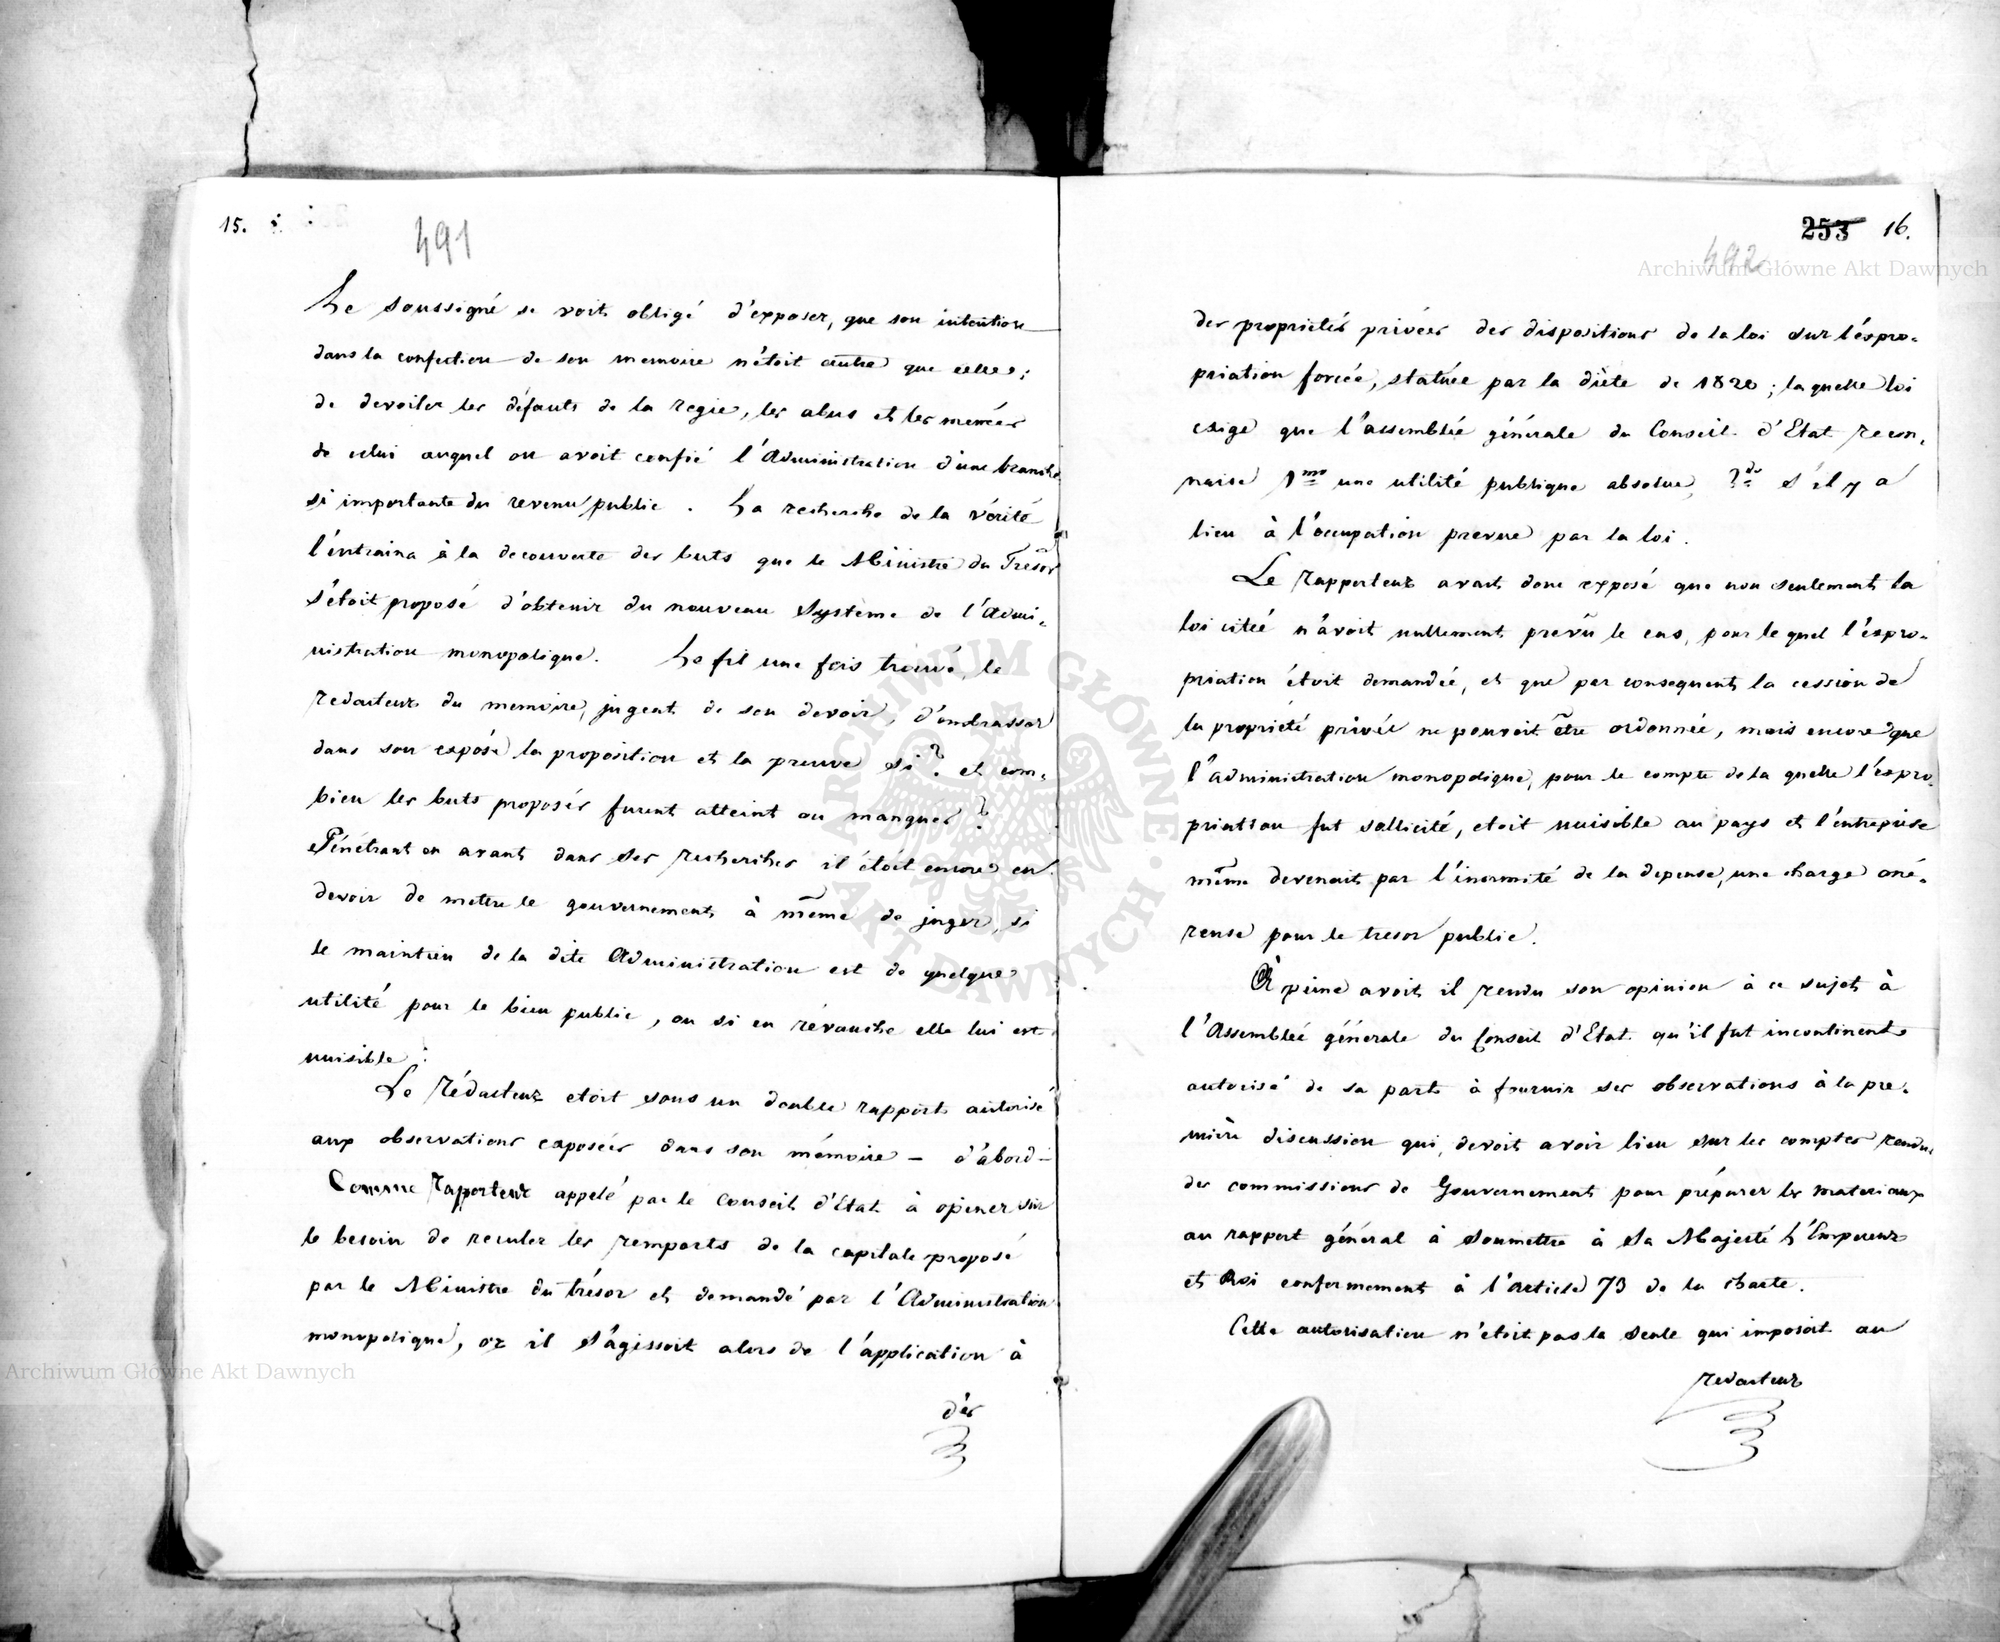 15.
491
Le soussigné se voit obligé d'exposer, que son intention
dans la confection de son memoire n'étoit autre que celle;
de devoiler les défauts de la regie, les abus et les menées
de celui auquel on avoit confié l'Administration d'une branche
si importante du revenu public. La recherche de la vérité
l'entraina à la decouverte des buts que le Ministre du Tresor
s'étoit proposé d'obtenir du nouveau Système de l'Admi-
nistration monopolique. Le fil une fois trouvé, le
redacteur du memoire, jugeat de son devoir, d'embrasser
dans son exposé la proposition et la preuve si? et com-
bien les buts proposés furent atteint ou manqués?
Pénétrant en avant dans ses recherches il étoit encore en
devoir de mettre le gouvernement à même de juger, si
le maintien de la dite Administration est de quelque
utilité pour le bien public, ou si en révanche elle lui est
nuisible:
Le Rédacteur etoit sous un double rapport autorisé
aux observations exposées dans son mémoire – d'abord –
Comme Raporteur appelé par le Conseil d'Etat à opiner sur
le besoin de reculer les remparts de la capitale proposé
par le Ministre du trésor et demandé par l'Administration
monopolique, or il s'agissoit alors de l'application à
des
253 16.
492
des proprietés privées des dispositions de la loi sur l'éxpro-
priation forcée, statuée par la diète de 1820; la quelle loi
exige que l'assemblée générale du Conseil d'Etat recon-
naise 1mo une utilité publique absolue, 2do s'il y a
lieu à l'occupation prevue par la loi.
Le rapporteur avait donc exposé que non seulement la
loi citée n'avoit nullement prevû le cas, pour le quel l'éxpro-
priation étoit demandée, et que par consequent la cession de
la propriété privée ne pouvoit être ordonnée, mais encore que
l'administration monopolique, pour le compte de la quelle l'expro-
priation fut sollicité, etoit nuisible au pays et l'entreprise
même devenait par l'énormité de la depense, une charge oné-
reuse pour le tresor public.
A peine avoit il rendu son opinion à ce sujet à
l'Assemblée générale du Conseil d'Etat qu'il fut incontinent
autorisé de sa part à fournir ses observations à la pre-
mière discussion qui devoit avoir lieu sur les comptes rendus
des commissions de Gouvernement pour préparer les materiaux
au rapport général à soumettre à Sa Majesté l'Empereur
et Roi conformement à l'article 73 de la charte.
Cette autorisation n'etoit pas la seule qui imposoit au
redacteur
Archiwum Główne Akt Dawnych
Archiwum Główne Akt Dawnych
ARCHIWUM GŁÓWNE AKT DAWNYCH